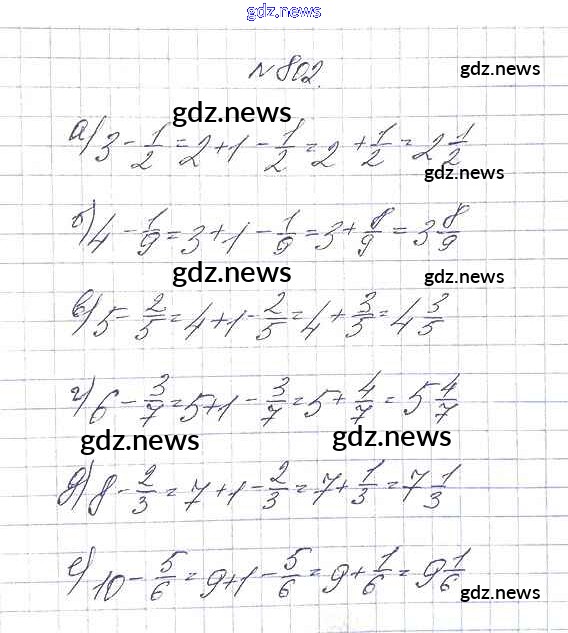 gdz.news
№ 802.
gdz.news
gdz.news
а) 3 - 1/2 = 2 + 1 - 1/2 = 2 + 1/2 = 2 1/2
gdz.news
б) 4 - 1/9 = 3 + 1 - 1/9 = 3 + 8/9 = 3 8/9
gdz.news
gdz.news
в) 5 - 2/5 = 4 + 1 - 2/5 = 4 + 3/5 = 4 3/5
г) 6 - 3/7 = 5 + 1 - 3/7 = 5 + 4/7 = 5 4/7
gdz.news
gdz.news
д) 8 - 2/3 = 7 + 1 - 2/3 = 7 + 1/3 = 7 1/3
е) 10 - 5/6 = 9 + 1 - 5/6 = 9 + 1/6 = 9 1/6
gdz.news